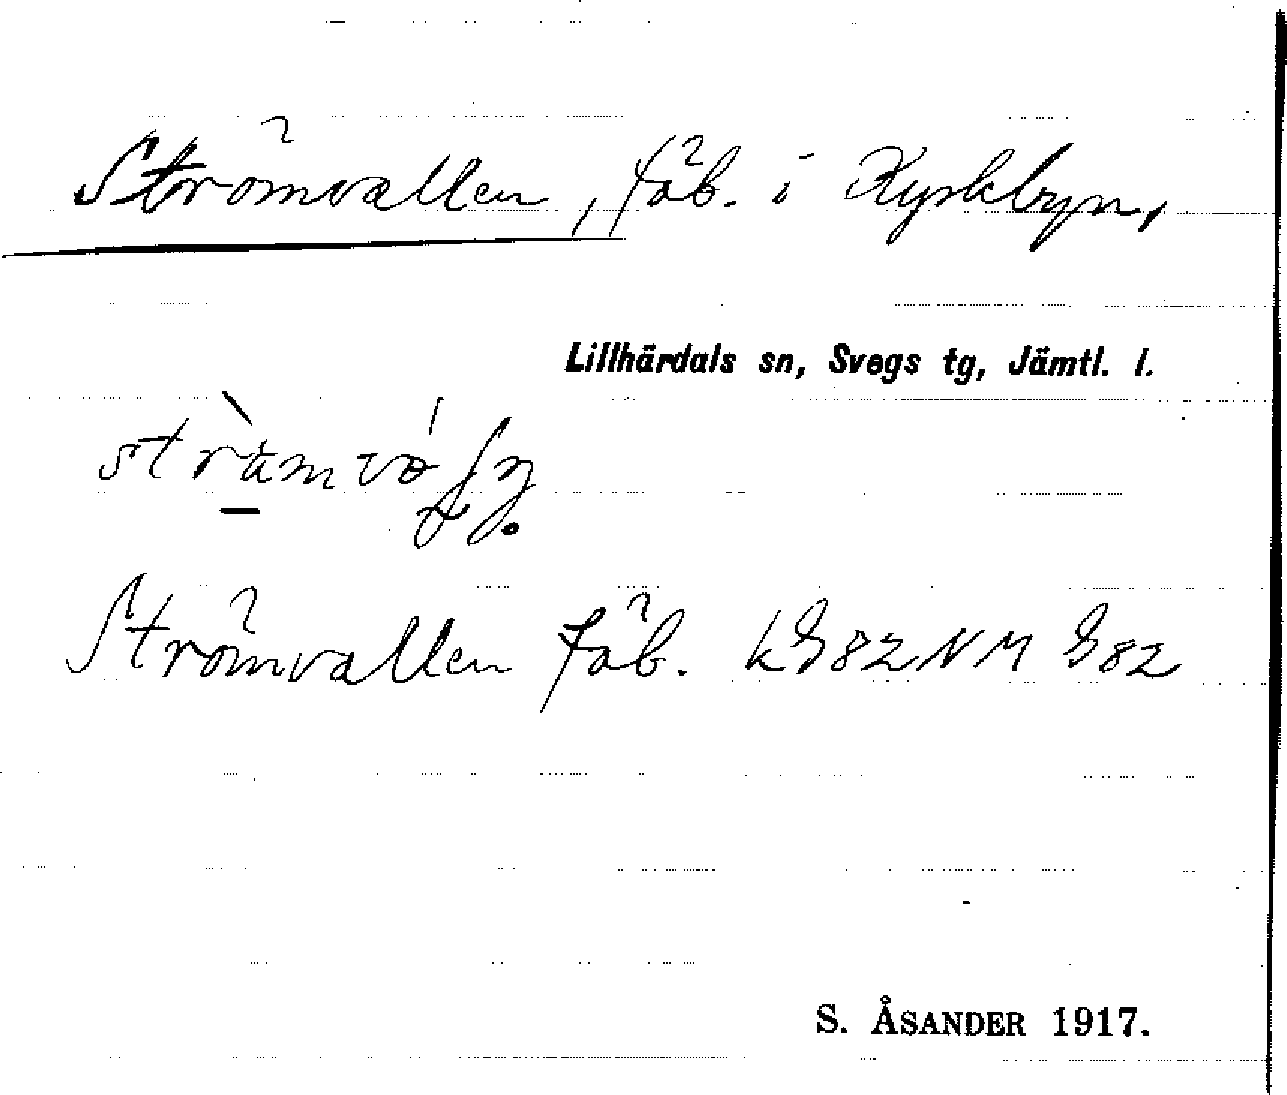 Strömvallen, fäb. i Kyrkbyn,
Lillhärdals sn, Svegs tg, Jämtl. l.
Strömvallen fäb. kG82NM G82
S. ÅSANDER 1917.